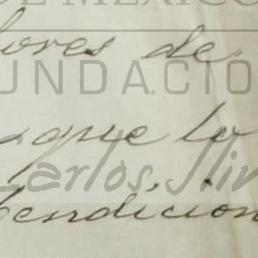 DE MÉXICO
lores de
FUNDACIÓN
que lo
Carlos Slim
bendicion